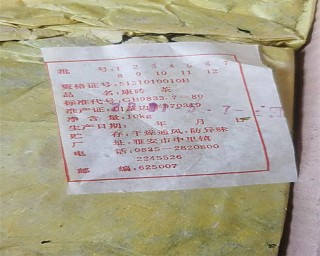 批 号:1 2 3 4 5 6 7
8 9 10 11 12
资格证号:5131010010B
品 名:康砖 茶
标准代号:GH9833.7-89
净 含 量:10kg
生产日期: 年 月 日
贮 存:干燥通风,防异味
厂 址:雅安市中里镇
电 话:0835-2820800
2245526
邮 编:625007